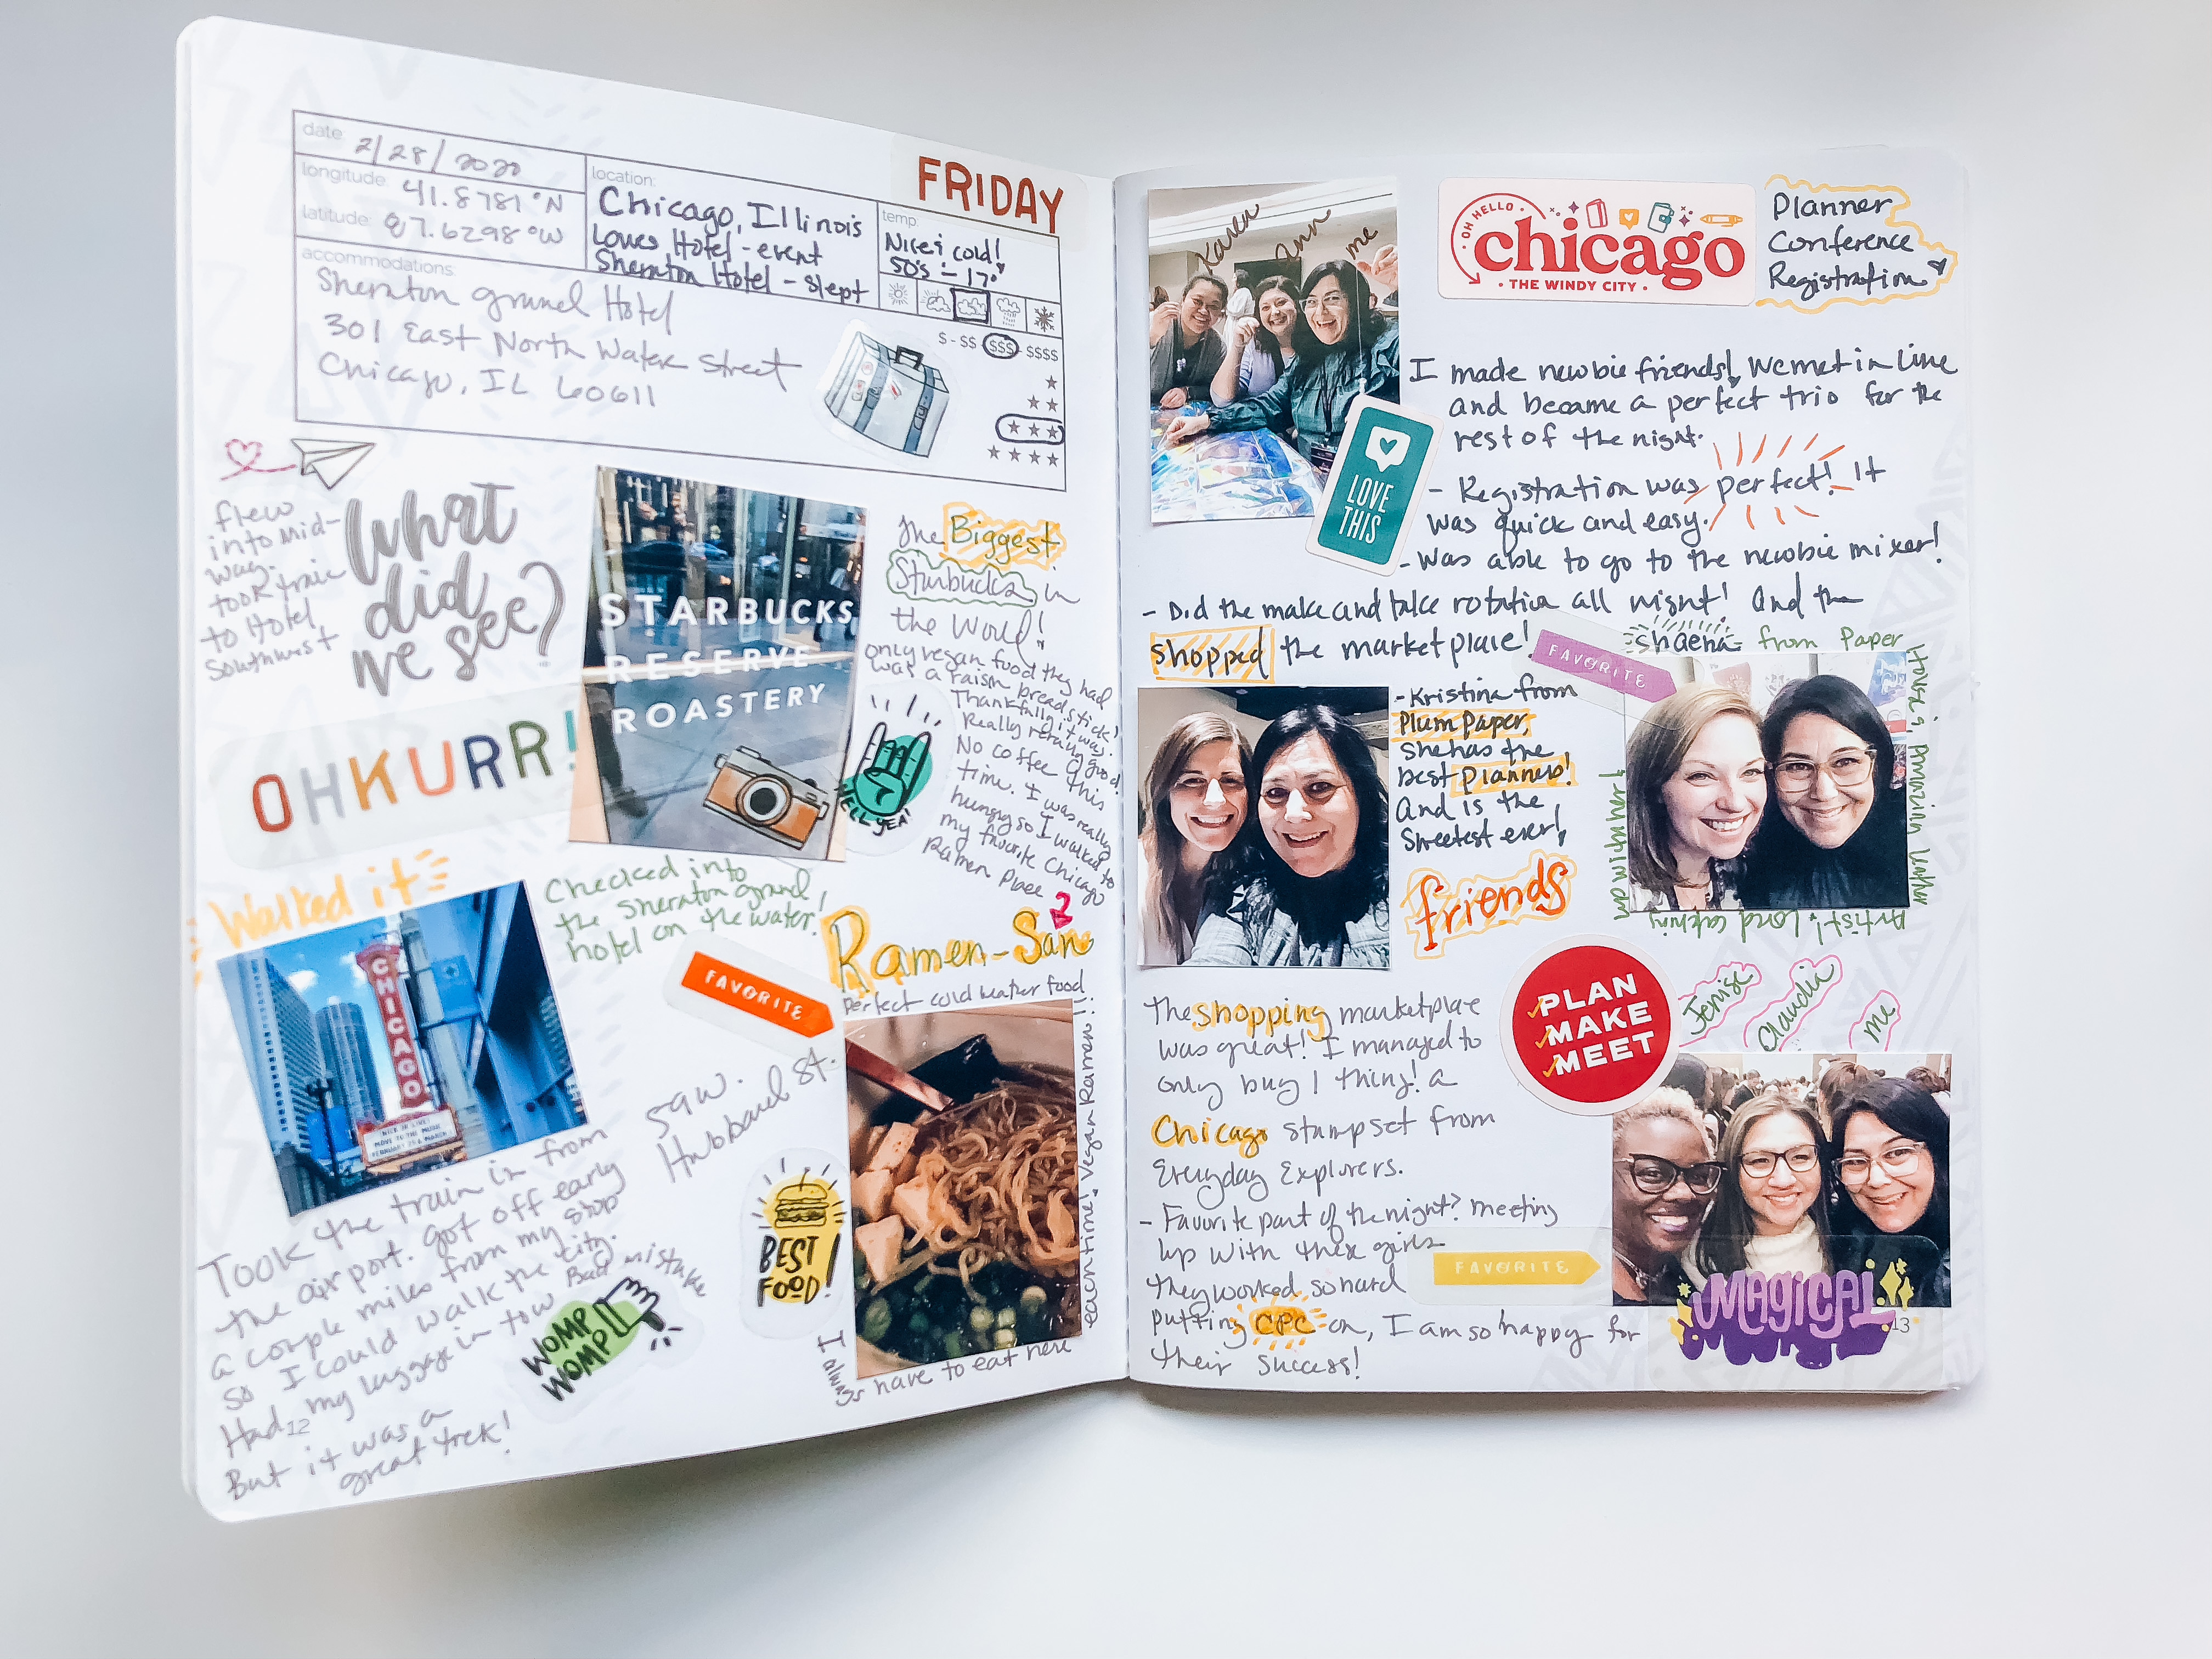 FRIDAY
date: 2/28/2020
longitude: 41.8781°N
latitude: 87.6298°W
location:
Chicago, Illinois
Loews Hotel - event
Sheraton Hotel - slept
temp:
Nice & cold!
50's - 17°
accommodations:
Sheraton grand Hotel
301 East North Water Street
Chicago, IL 60611
$ - $$ - $$$ - $$$$
flew
into Mid-
way.
took train
to Hotel
Southwest
What
did
we see?
OHKURR!
STARBUCKS
RESERVE
ROASTERY
The Biggest
Starbucks in
the World!
only vegan food they had
was a raisin bread stick!
Thankfully it was
Really good
No coffee this
time. I was really
hungry so I walked to
my favorite Chicago
Ramen Place
HELL YEA!
Walked it
CHICAGO
Checked into
the Sheraton grand
hotel on the water!
FAVORITE
Ramen-San
Perfect cold weather food
each time! Vegan Ramen!!
I always have to eat here
saw
Hubbard St.
BEST
FOOD!
Took the train in from
the airport. Got off early
a couple miles from my stop
so I could walk the city.
Had my luggage in tow Bad mistake
But it was a
great trek!
WOMP
WOMP
12
Karen
Ann
me
OH HELLO
chicago
THE WINDY CITY
Planner
Conference
Registration
I made newbie friends! We met in line
and became a perfect trio for the
rest of the night.
LOVE
THIS
- Registration was perfect! It
was quick and easy.
- Was able to go to the newbie mixer!
- Did the make and take rotation all night! And the
shopped the marketplace!
FAVORITE
Shaena from Paper
House, Amazing
Artist! Loved catching
up with her!
- Kristina from
Plum Paper,
she has the
best planners!
And is the
Sweetest ever!
friends
PLAN
MAKE
MEET
Jenise
Claudia
me
The shopping marketplace
was great! I managed to
only buy 1 thing! a
Chicago stamp set from
Everyday Explorers.
- Favorite part of the night? meeting
up with these girls
they worked so hard
putting CPC on, I am so happy for
their success!
FAVORITE
MAGICAL
13